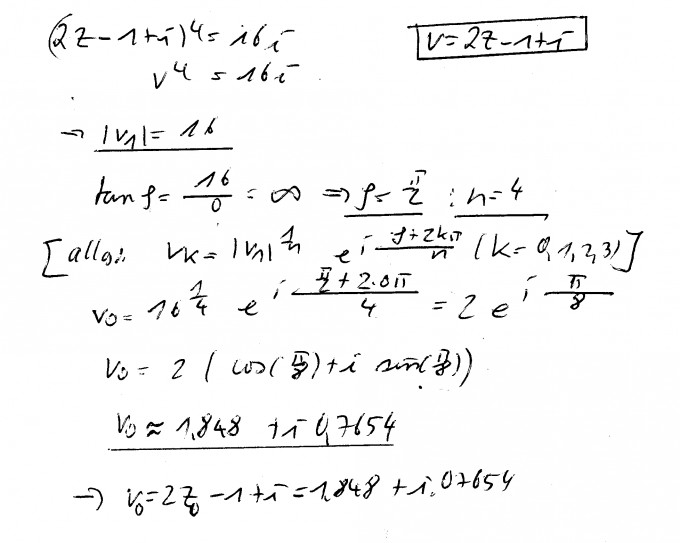 (2z-1+i)⁴ = 16i
v = 2z-1+i
v⁴ = 16i
→ |v₁| = 16
tan φ = 16/0 = ∞ ⇒ φ = π/2 ; n = 4
[allg.: vₖ = |v₁|^(1/n) e^(i (φ+2kπ)/n) (k = 0,1,2,3)]
v₀ = 16^(1/4) e^(i (π/2 + 2·0π)/4) = 2 e^(i π/8)
v₀ = 2 ( cos(π/8) + i sin(π/8))
v₀ ≈ 1,848 + i 0,7654
→ v₀ = 2z₀ - 1 + i = 1,848 + i.0,7654